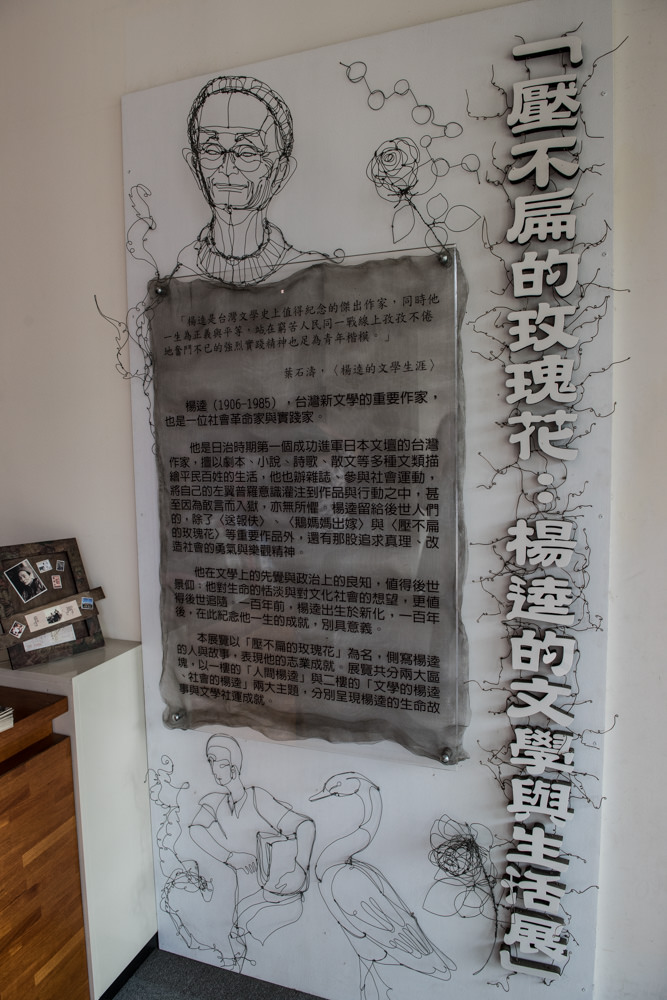 「壓不扁的玫瑰花：楊逵的文學與生活展」
「楊逵是台灣文學史上值得紀念的傑出作家，同時他
一生為正義與平等、站在窮苦人民同一戰線上孜孜不倦
地奮鬥不已的強烈實踐精神也足為青年楷模。」
葉石濤，〈楊逵的文學生涯〉
楊逵（1906-1985），台灣新文學的重要作家，
也是一位社會革命家與實踐家。
他是日治時期第一個成功進軍日本文壇的台灣
作家，擅以劇本、小說、詩歌、散文等多種文類描
繪平民百姓的生活，他也辦雜誌、參與社會運動，
將自己的左翼普羅意識灌注到作品與行動之中，甚
至因為敢言而入獄，亦無所懼。楊逵留給後世人們
的，除了〈送報伕〉、〈鵝媽媽出嫁〉與〈壓不扁
的玫瑰花〉等重要作品外，還有那股追求真理、改
造社會的勇氣與樂觀精神。
他在文學上的先覺與政治上的良知，值得後世
景仰；他對生命的恬淡與對文化社會的想望，更值
得後世追隨。一百年前，楊逵出生於新化，一百年
後，在此紀念他一生的成就，別具意義。
本展覽以「壓不扁的玫瑰花」為名，側寫楊逵
的人與故事，表現他的志業成就。展覽共分兩大區
塊，以一樓的「人間楊逵」與二樓的「文學的楊逵
、社會的楊逵」兩大主題，分別呈現楊逵的生命故
事與文學社運成就。